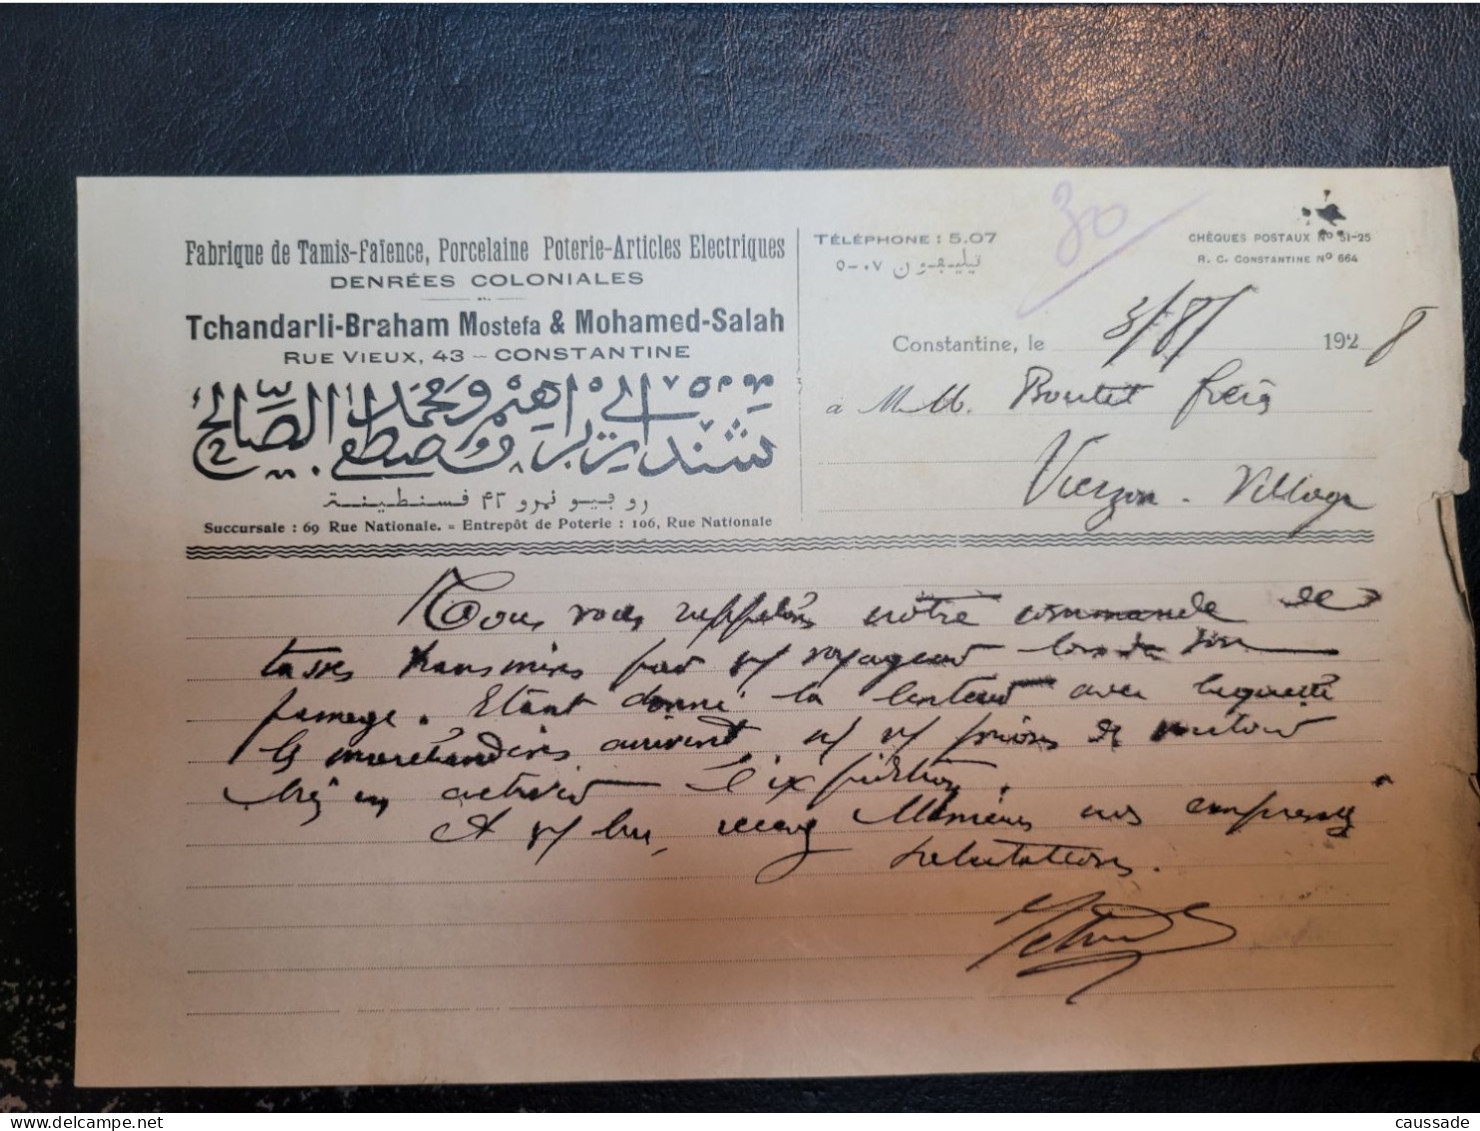 Fabrique de Tamis-Faïence, Porcelaine Poterie-Articles Electriques
DENRÉES COLONIALES
Tchandarli-Braham Mostefa & Mohamed-Salah
RUE VIEUX, 43 – CONSTANTINE
شندارلي براهم مصطفى و محمد الصالح
روجيو نمرو ٤٣ قسنطينة
Succursale : 69 Rue Nationale. = Entrepôt de Poterie : 106, Rue Nationale
TÉLÉPHONE : 5.07
تيليفون ٠٧-٥
30
CHÈQUES POSTAUX Nº 51-25
R. C. CONSTANTINE Nº 664
Constantine, le 3/8/ 1928
à MM. Boutet frères
Vierzon - Village
Nous vous rappelons notre commande de
tasses transmises par v/ voyageur lors de son
passage. Etant donné la lenteur avec laquelle
les marchandises arrivent, n/ v/ prions de vouloir
bien en activer l'expédition.
A v/ lire, recevez Messieurs nos empressées
salutations.